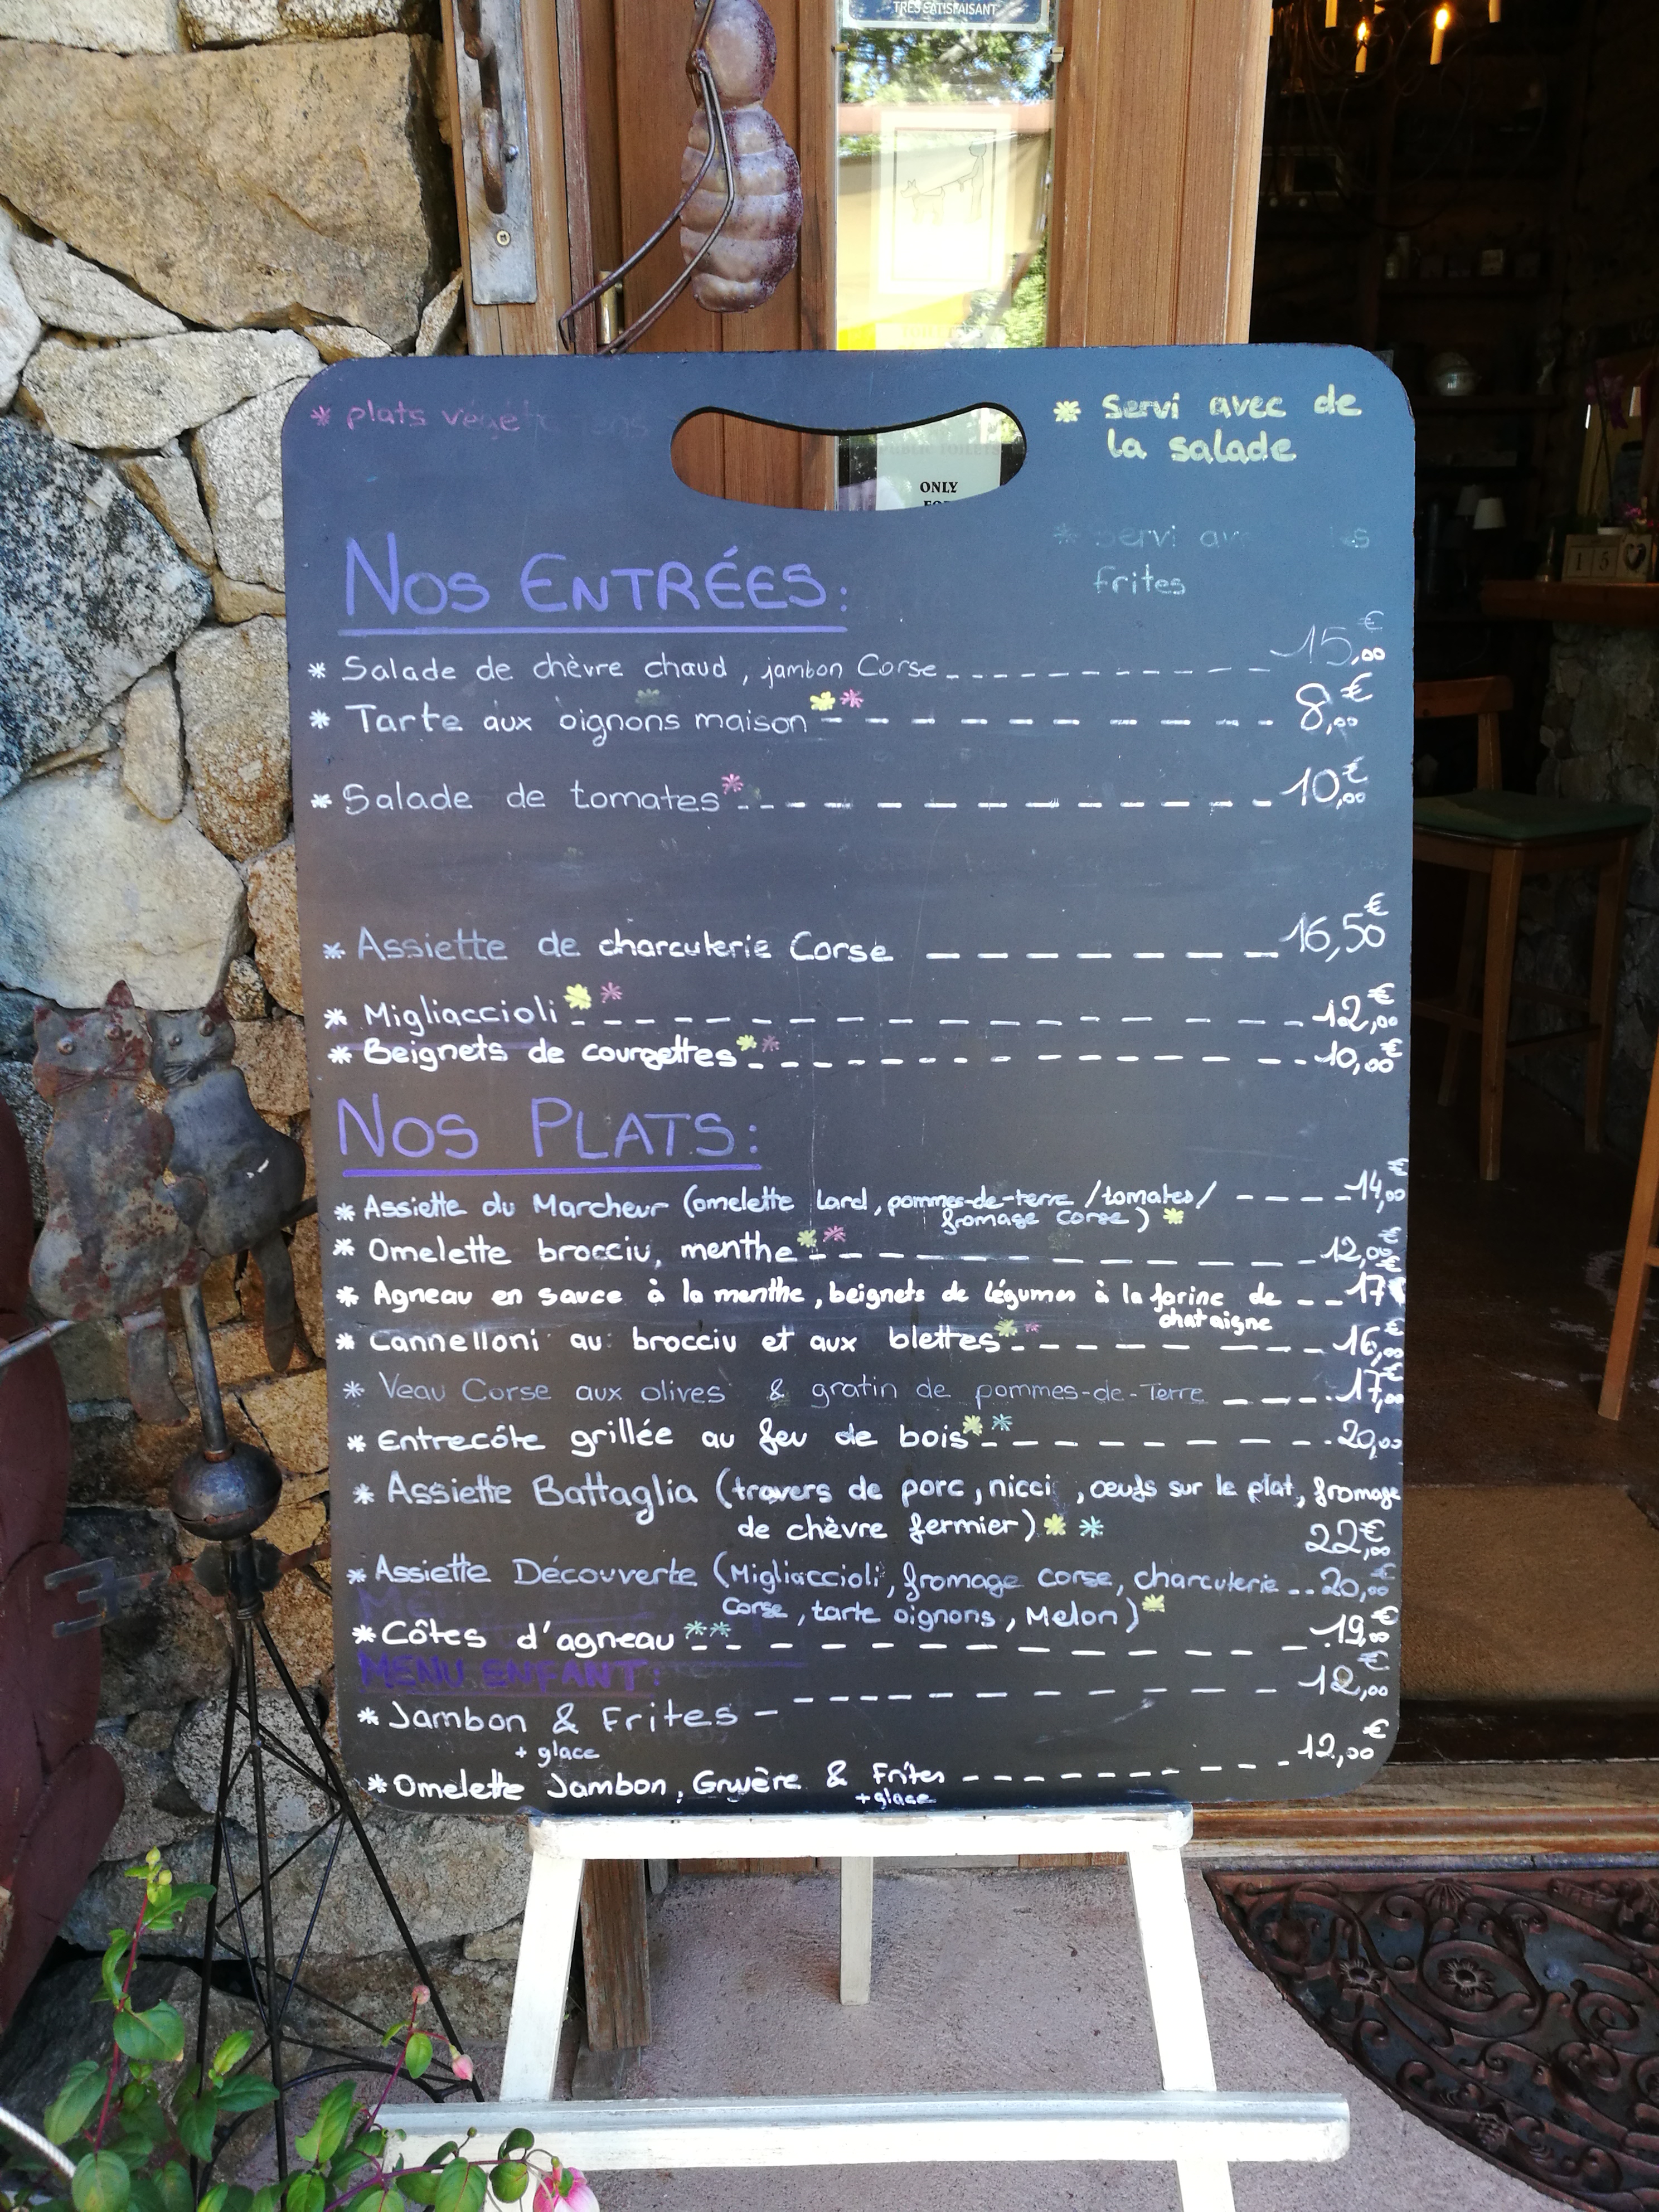 TRÈS SATISFAISANT
* plats
* Servi avec de
la salade
ONLY
* Servi
frites
NOS ENTRÉES:
* Salade de chèvre chaud, jambon Corse _ _ _ _ _ _ _ _ 15,00€
* Tarte aux oignons maison ** _ _ _ _ _ _ _ _ 8,00€
* Salade de tomates* _ _ _ _ _ _ _ _ 10,00€
* Assiette de charcuterie Corse _ _ _ _ _ _ _ _ 16,50€
* Migliaccioli ** _ _ _ _ _ _ _ _ 12,00€
* Beignets de courgettes ** _ _ _ _ _ _ _ _ 10,00€
NOS PLATS:
* Assiette du Marcheur (omelette lard, pommes-de-terre/tomates/ _ _ _ _ 14,00€
fromage corse) *
* Omelette brocciu, menthe ** _ _ _ _ _ _ _ _ 12,00€
* Agneau en sauce à la menthe, beignets de légumes à la farine de _ _ 17€
chataigne
* Cannelloni au brocciu et aux blettes ** _ _ _ _ _ _ _ 16,00€
* Veau Corse aux olives & gratin de pommes-de-Terre _ _ _ 17,00€
* Entrecôte grillée au feu de bois ** _ _ _ _ _ _ _ 20,00
* Assiette Battaglia (travers de porc, nicci, œufs sur le plat, fromage
de chèvre fermier) ** 22,00€
* Assiette Découverte (Migliaccioli, fromage corse, charcuterie _ _ 20,00€
corse, tarte oignons, Melon) *
* Côtes d'agneau ** _ _ _ _ _ _ _ _ 19,00€
MENU ENFANT:
* Jambon & Frites - _ _ _ _ _ _ _ _ 12,00€
+ glace
* Omelette Jambon, Gruyère & Frites _ _ _ _ _ _ _ _ 12,00€
+ glace
15